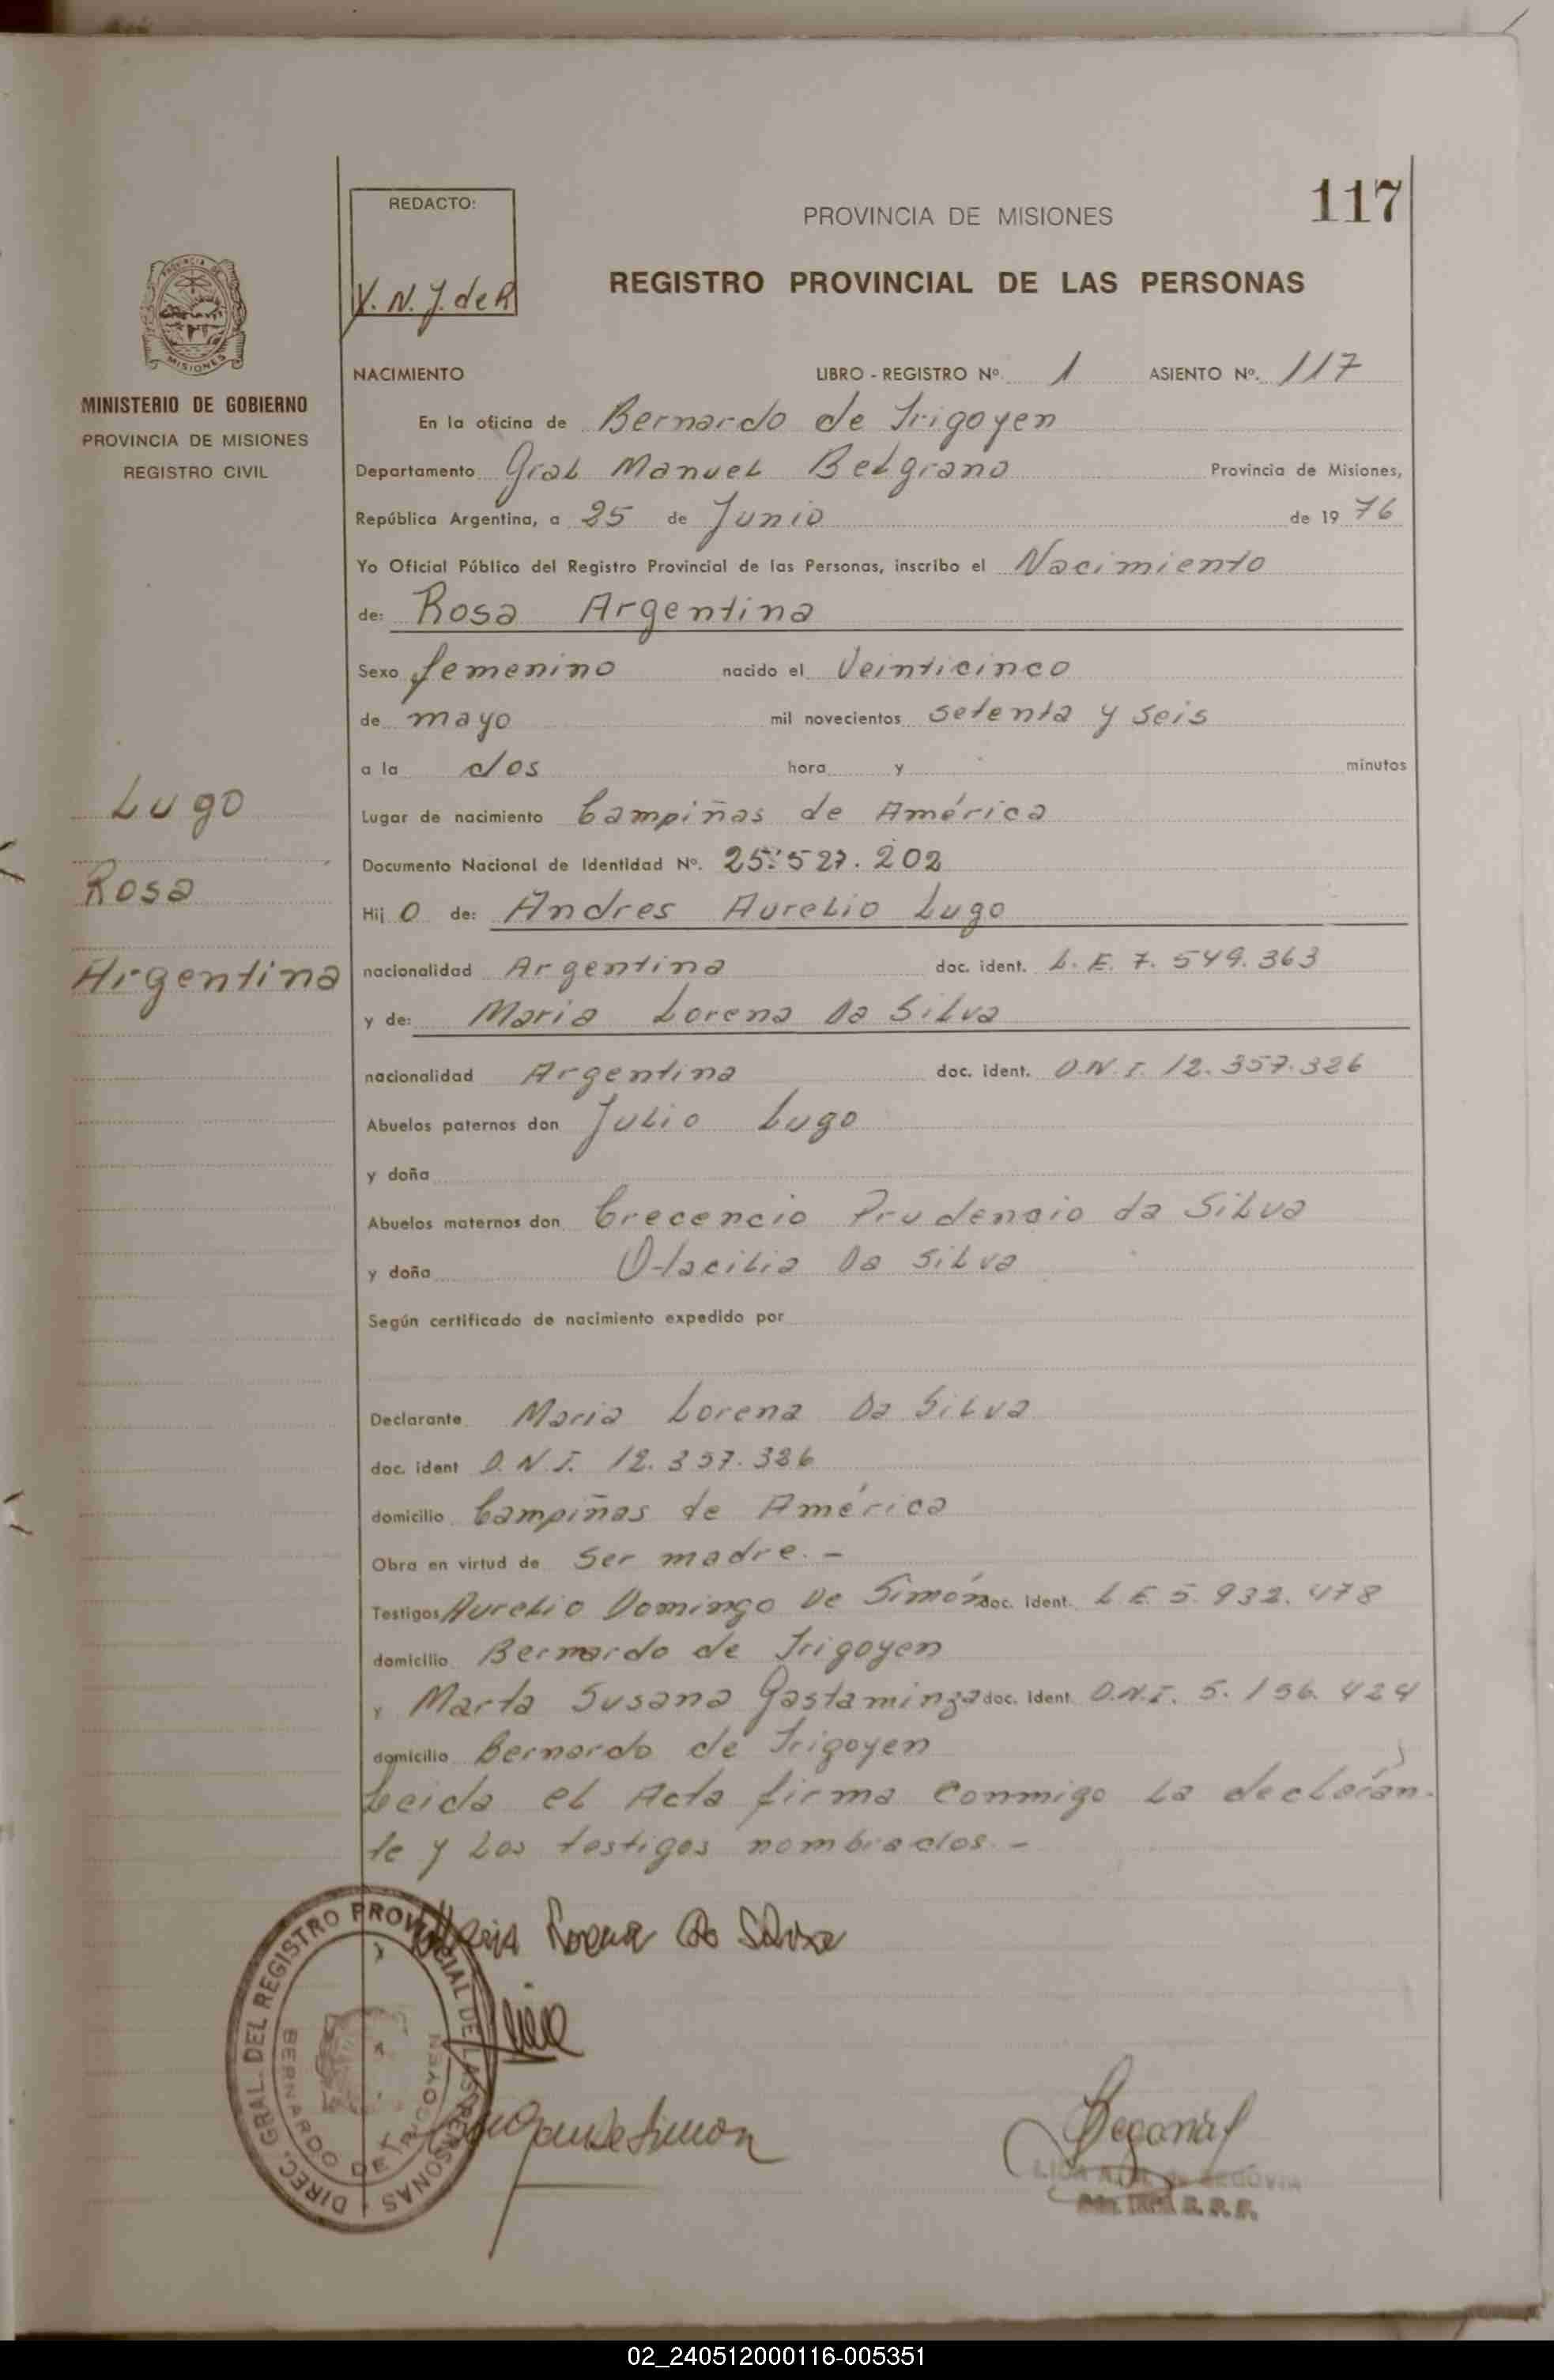 117
REDACTO:
Y. N. J. de R
PROVINCIA DE MISIONES
REGISTRO PROVINCIAL DE LAS PERSONAS
MISIONES
MINISTERIO DE GOBIERNO
PROVINCIA DE MISIONES
REGISTRO CIVIL
NACIMIENTO LIBRO - REGISTRO Nº. 1 ASIENTO Nº. 117
En la oficina de Bernardo de Irigoyen
Departamento Gral Manuel Belgrano Provincia de Misiones,
República Argentina, a 25 de Junio de 19 76
Yo Oficial Público del Registro Provincial de las Personas, inscribo el Nacimiento
de: Rosa Argentina
Sexo femenino nacido el Veinticinco
de mayo mil novecientos setenta y seis
a la dos hora y minutos
Lugo
Rosa
Argentina
Lugar de nacimiento Campiñas de América
Documento Nacional de Identidad Nº. 25.527.202
Hij o de: Andres Aurelio Lugo
nacionalidad Argentina doc. ident. L. E. 7. 549. 363
y de: Maria Lorena Da Silva
nacionalidad Argentina doc. ident. D.N.I. 12. 357.326
Abuelos paternos don Julio Lugo
y doña
Abuelos maternos don Crecencio Prudencio da Silva
y doña Otacilia Da Silva
Según certificado de nacimiento expedido por
Declarante Maria Lorena Da Silva
doc. ident D. N. I. 12. 357. 326
domicilio Campiñas de América
Obra en virtud de Ser madre. -
Testigos Aurelio Domingo De Simón doc. Ident. L. E. 5. 932. 478
domicilio Bernardo de Irigoyen
y Marta Susana Gastaminza doc. Ident. D.N.I. 5. 156. 424
domicilio Bernardo de Irigoyen
Leida el Acta firma conmigo la declaran-
te y los testigos nombrados. -
Maria Lorena Da Silva
DIREC. GRAL. DEL REGISTRO PROVINCIAL DE LAS PERSONAS
BERNARDO DE IRIGOYEN
de Simon
02_240512000116-005351